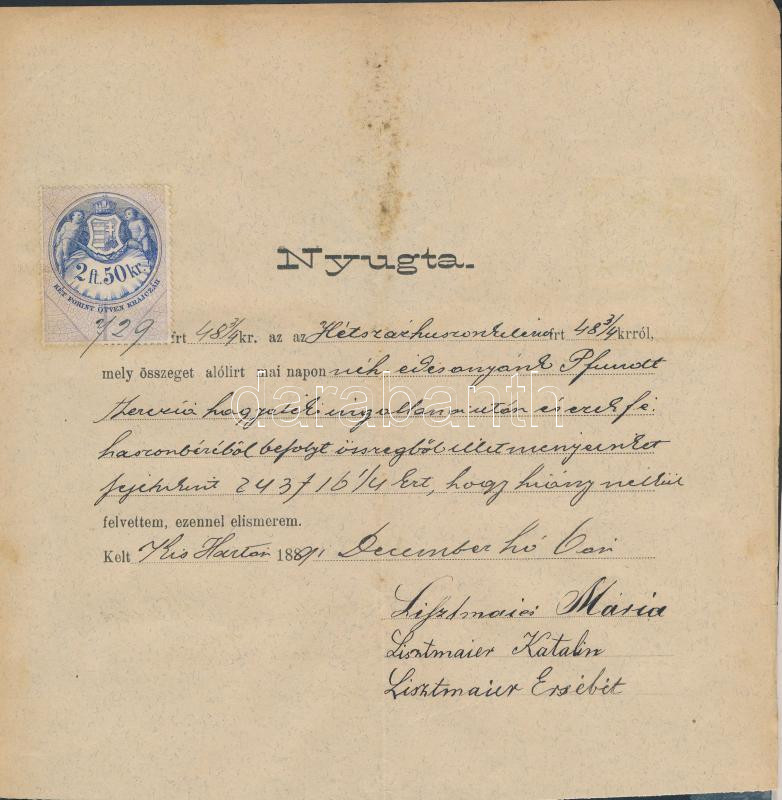 Nyugta.
2 ft. 50 kr.
KÉT FORINT ÖTVEN KRAJCZÁR
729 frt 48 3/4 kr. az az Hétszázhuszonkilencz frt 48 3/4 krról,
mely összeget alólirt mai napon néh. édesanyánk Pfundt
Terezia hagyatéki ingatlana után és ezek fé.
haszonbéréből befolyt összegből illetményeinket
fejenként 243 f 16 1/4 krt, hogy hiány nélkül
felvettem, ezennel elismerem.
Kelt Kis Hartán 1891 December hó 6 án
Lisztmaier Mária
Lisztmaier Katalin
Lisztmaier Ersébét
darabanth